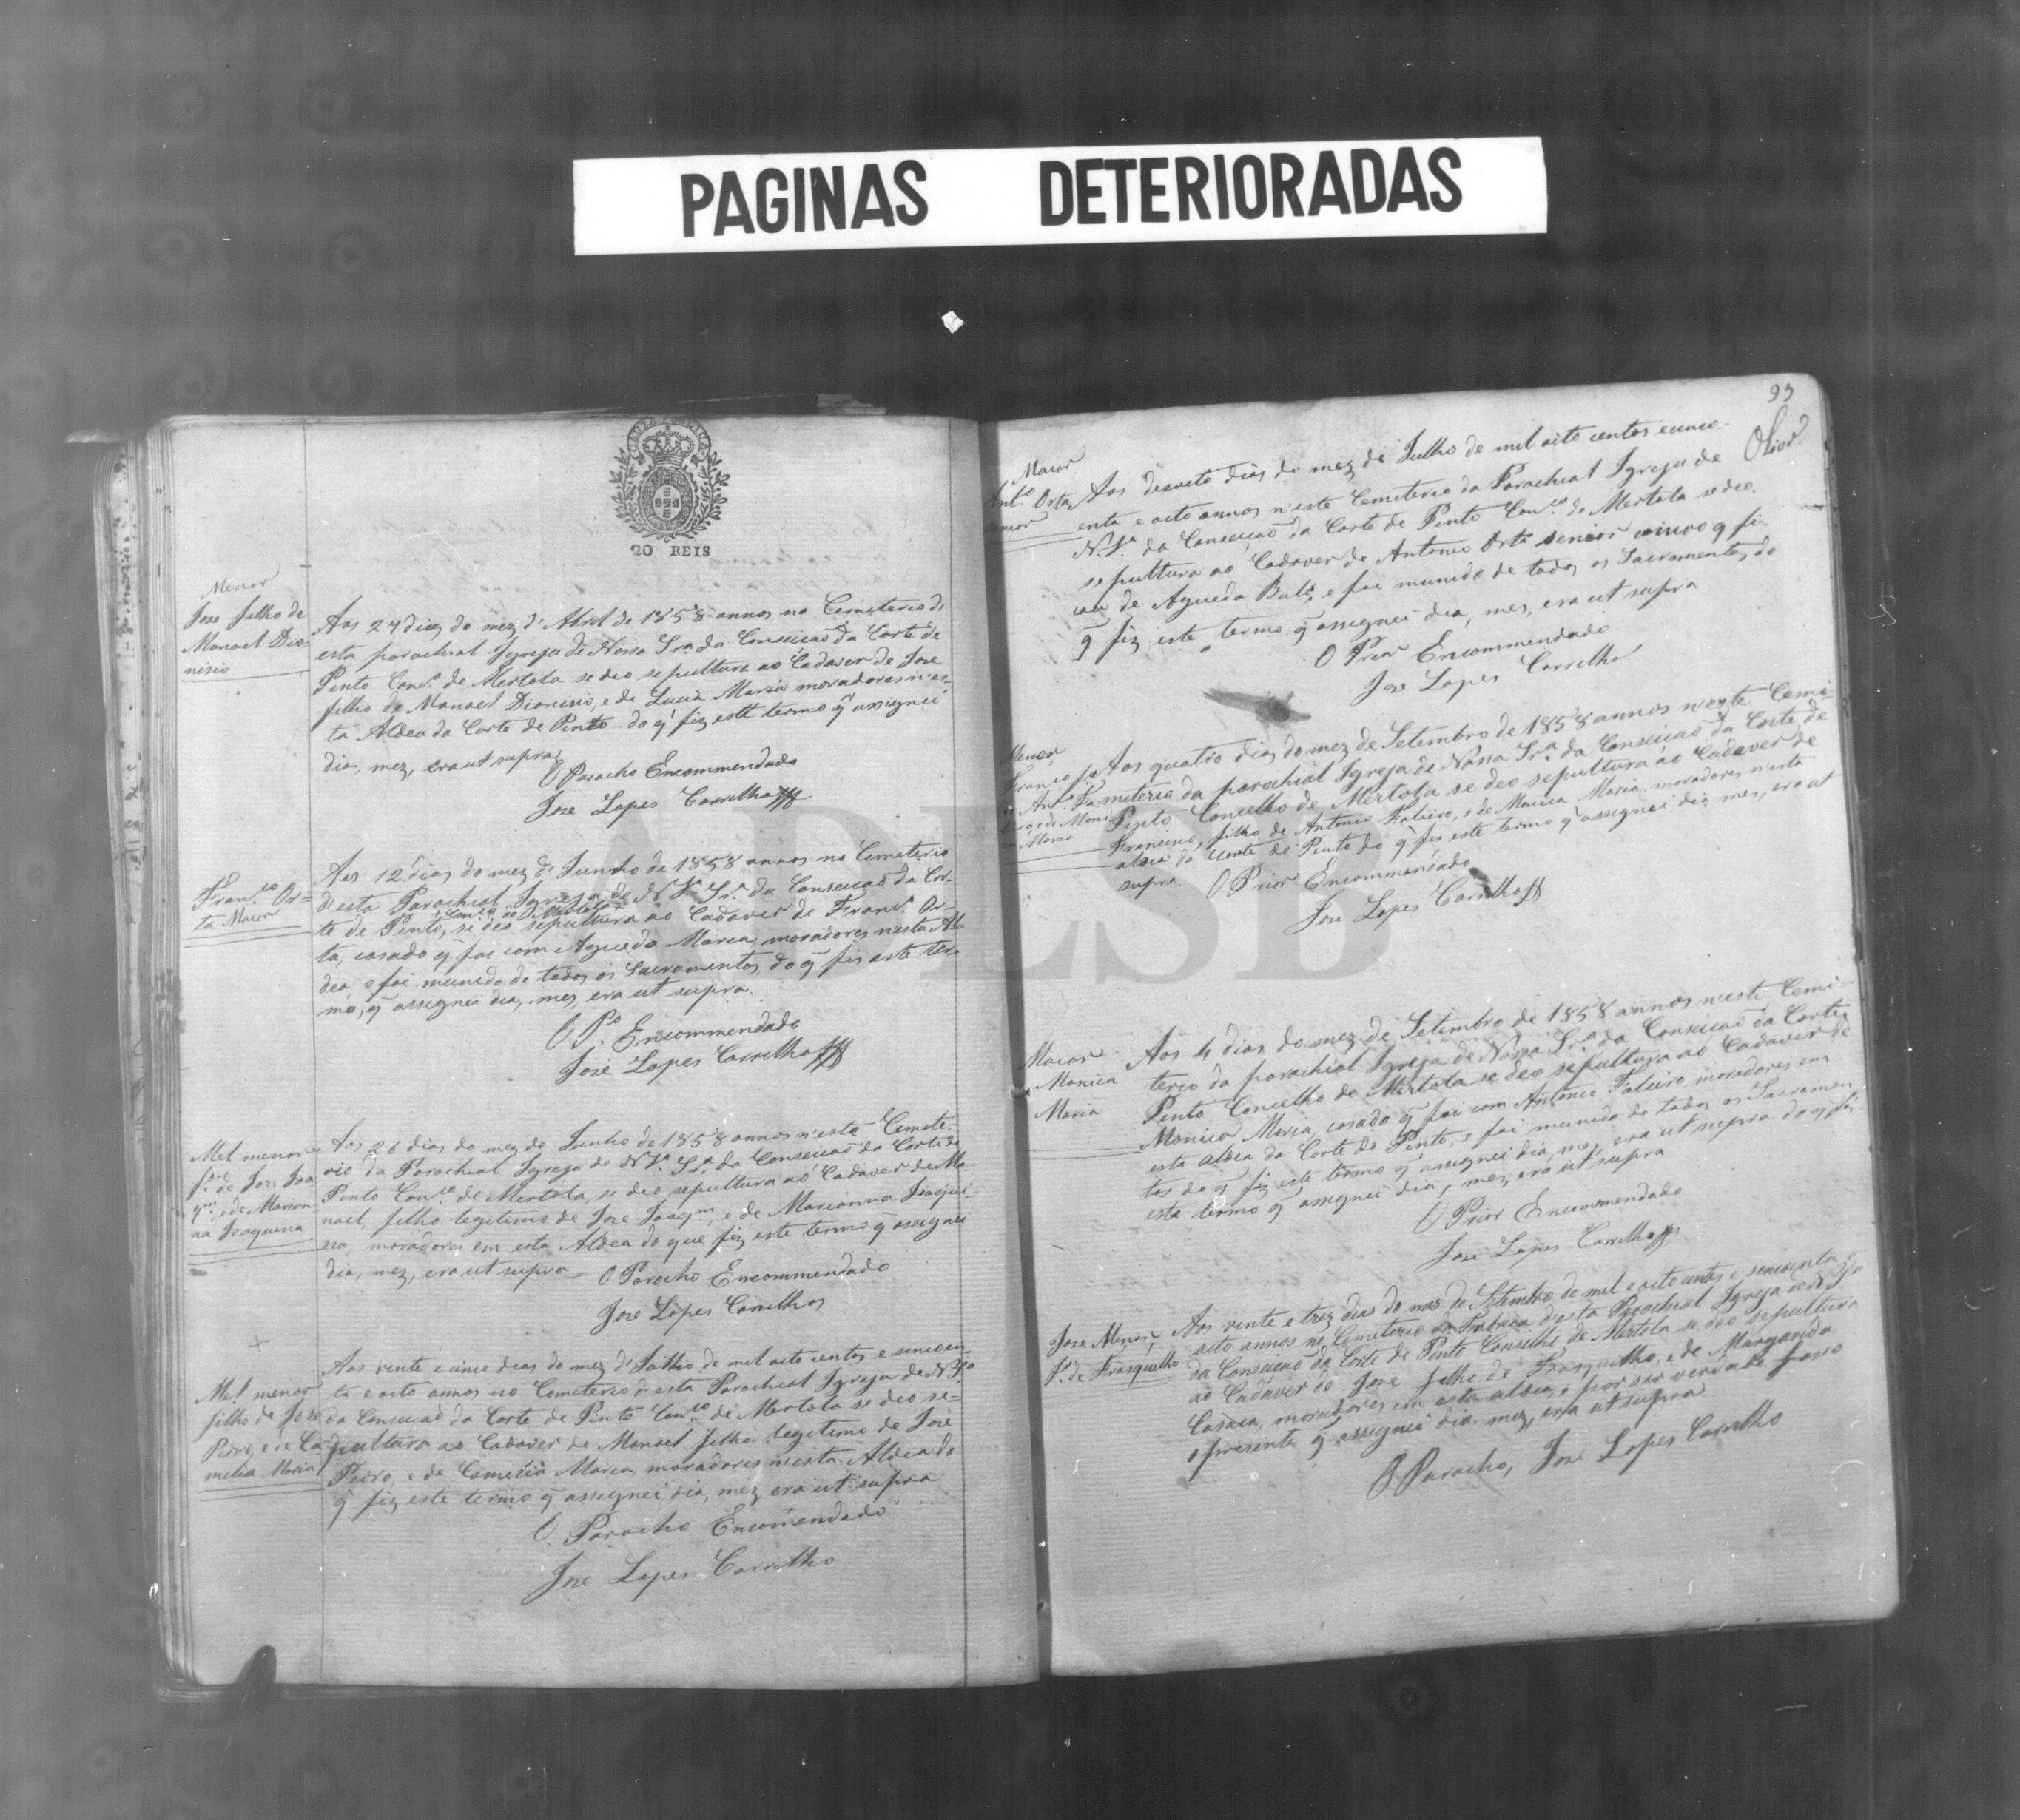 PAGINAS DETERIORADAS
20 REIS
Menor
Jose filho de
Manoel Dio
nisio
Aos 24 dias do mez d'Abril de 1858 annos no Cemiterio d'
esta parochial Igreja de Nossa Sra da Conseicaõ da Corte de
Pinto Conco. de Mertola se deo sepultura ao Cadaver de Jose
filho de Manoel Dionisio, e de Lucia Maria moradores n'es-
ta Aldea da Corte de Pinto do q̃ fiz este termo q̃ assignei
dia, mez, era ut supra
O Parocho Encommendado
Jose Lopes Carrilho
Franco. Or=
ta Maior
Aos 12 dias do mez d'Junho de 1858 annos no Cemiterio
d'esta Parochial Igreja de N.ª Sr.ª da Conseicaõ da Cor-
te de Pinto, se deo sepultura ao Cadaver de Franco. Or-
ta, casado q̃ foi com Agueda Maria, moradores nesta Al
dea, e foi munido de todos os Sacramentos do q̃ fis este ter
mo, q̃ assignei dia, mez, era ut supra.
O P.º Encommendado
José Lopes Carrilho
Mel menor
f.º de Jose Joa
qm, e de Marian
na Joaquina
Aos 26 dias do mez de Junho de 1858 annos n'este Cemite-
rio da Parochial Igreja de N.ª Sr.ª da Conseicaõ da Corte de
Pinto Conco. de Mertola, se deo sepultura ao Cadaver de Ma-
noel, filho legitimo de Jose Joaqm, e de Marianna Joaqui-
na, moradores em esta Aldea do que fiz este termo q̃ assignei
dia, mez, era ut supra O Parocho Encommendado
Jose Lopes Carrilho
Mel menor
filho de Jose
Pedro, e de Ca
milia Maria
Aos vente e cinco dias do mez d'Julho de mil oito centos e sincoen
ta e oito annos no Cemiterio d'esta Parochial Igreja de N. Sra
da Conseicaõ da Corte de Pinto Conco. de Mertola se deo se=
pultura ao Cadaver de Manoel filho legitimo de José
Pedro, e de Camilia Maria, moradores n'esta Aldea do
q̃ fiz este termo q̃ assignei dia, mez era ut supra
O Parocho Encomendado
Jose Lopes Carrilho
Maior
Ant.º Orta
senior
Aos desoito dias do mez de Julho de mil oito centos e cinco-
enta e oito annos n'este Cemiterio da Parochial Igreja de
N. Sr.ª da Conseicaõ da Corte de Pinto Conco. de Mertola se deo
sepultura ao Cadaver de Antonio Orta senior viuvo q̃ fi-
cou de Agueda e foi munido de todos os Sacramentos do
q̃ fiz este termo q̃ assignei dia, mes, era ut supra
O Prior Encommendado
Jose Lopes Carrilho
Menor
Aos quatro dias do mez de Setembro de 1858 annos n'este Cemi-
miterio da parochial Igreja de Nossa Sr.ª da Conseicaõ da Corte de
Pinto Concelho de Mertola se deo sepultura ao Cadaver de
Francisco, filho de Antonio Faleiro, e de Monica Maria moradores n'esta
aldea da Corte de Pinto do q̃ fis este termo q̃ assignei dia mes, era ut
supra. O Prior Encommendado
Jose Lopes Carrilho
Maior
Monica
Maria
Aos 4 dias do mez de Setembro de 1858 annos n'este Cemi-
terio da parochial Igreja de Nossa Sr.ª da Conseicaõ da Corte
Pinto Concelho de Mertola se deo sepultura ao Cadaver de
Monica Maria, casada q̃ foi com Antonio Faleiro moradores em
esta aldea da Corte de Pinto, e foi munida de todos os Sacramen
tos do q̃ fiz este termo q̃ assignei dia, mez, era ut supra do q̃ fiz
este termo q̃ assignei dia, mez, era ut supra
O Prior Encommendado
Jose Lopes Carrilho
Jose Menor,
f.º de Frasquilho
Aos vente e trez dias do mez de Setembro de mil e oito centos e sencoenta e
oito annos no Cemiterio da Fabrica d'esta Parochial Igreja de N. Sra
da Conseicaõ da Corte de Pinto Concelho de Mertola se deo sepultura
ao Cadaver de Jose filho de Frasquilho, e de Margarida
moradores em esta aldea, e por ser verdade passo
o presente q̃ assignei dia, mez, era ut supra
O Parocho, Jose Lopes Carrilho